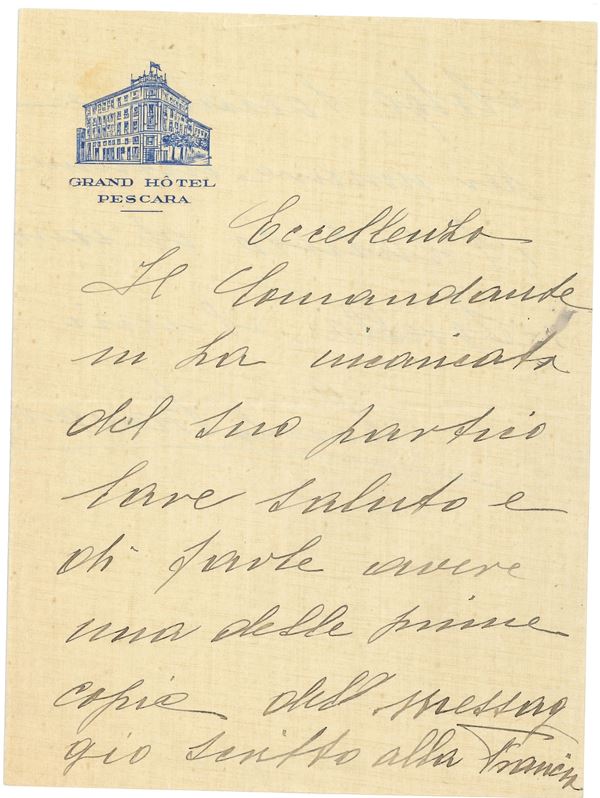 GRAND HÔTEL
PESCARA
Eccellenza
Il Comandante
m ha incaricato
del suo partico
lare saluto e
di farle avere
una delle prime
copie del messag
gio scritto alla Francia